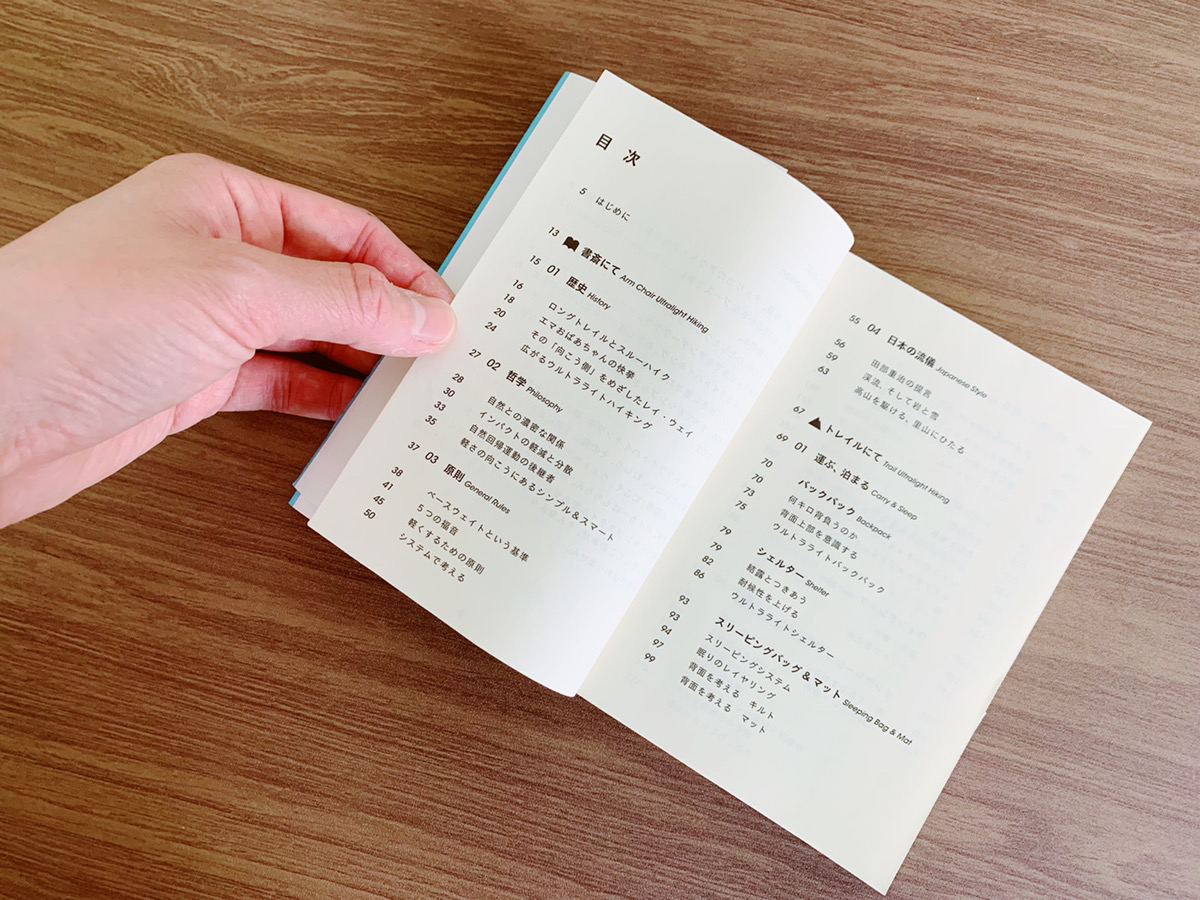 目次
5 はじめに
13 書斎にて Arm Chair Ultralight Hiking
15 01 歴史 History
16 ロングトレイルとスルーハイク
18 エマおばあちゃんの快挙
20 その「向こう側」をめざしたレイ・ウェイ
24 広がるウルトラライトハイキング
27 02 哲学 Philosophy
28 自然との濃密な関係
30 インパクトの軽減と分散
33 自然回帰運動の後継者
35 軽さの向こうにあるシンプル&スマート
37 03 原則 General Rules
38 ベースウェイトという基準
41 5つの福音
45 軽くするための原則
50 システムで考える
55 04 日本の流儀 Japanese Style
56 田部重治の提言
59 渓流、そして岩と雪
63 高山を駆ける、里山にひたる
67 トレイルにて Trail Ultralight Hiking
69 01 運ぶ、泊まる Carry & Sleep
70 バックパック Backpack
70 何キロ背負うのか
73 背面上部を意識する
75 ウルトラライトバックパック
79 シェルター Shelter
79 結露とつきあう
82 耐候性を上げる
86 ウルトラライトシェルター
93 スリーピングバッグ&マット Sleeping Bag & Mat
93 スリーピングシステム
94 眠りのレイヤリング
97 背面を考える キルト
99 背面を考える マット